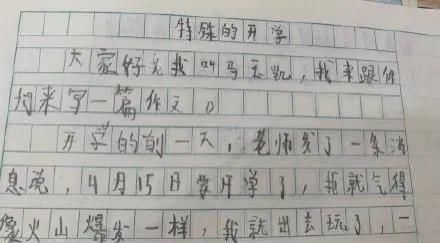 特殊的开学
大家好!我叫马玉凯,我来跟你
们来写一篇作文。
开学的前一天,老师发了一条消
息说,4月15日要开学了,我就气得
像火山爆发一样,我就出去玩了,一